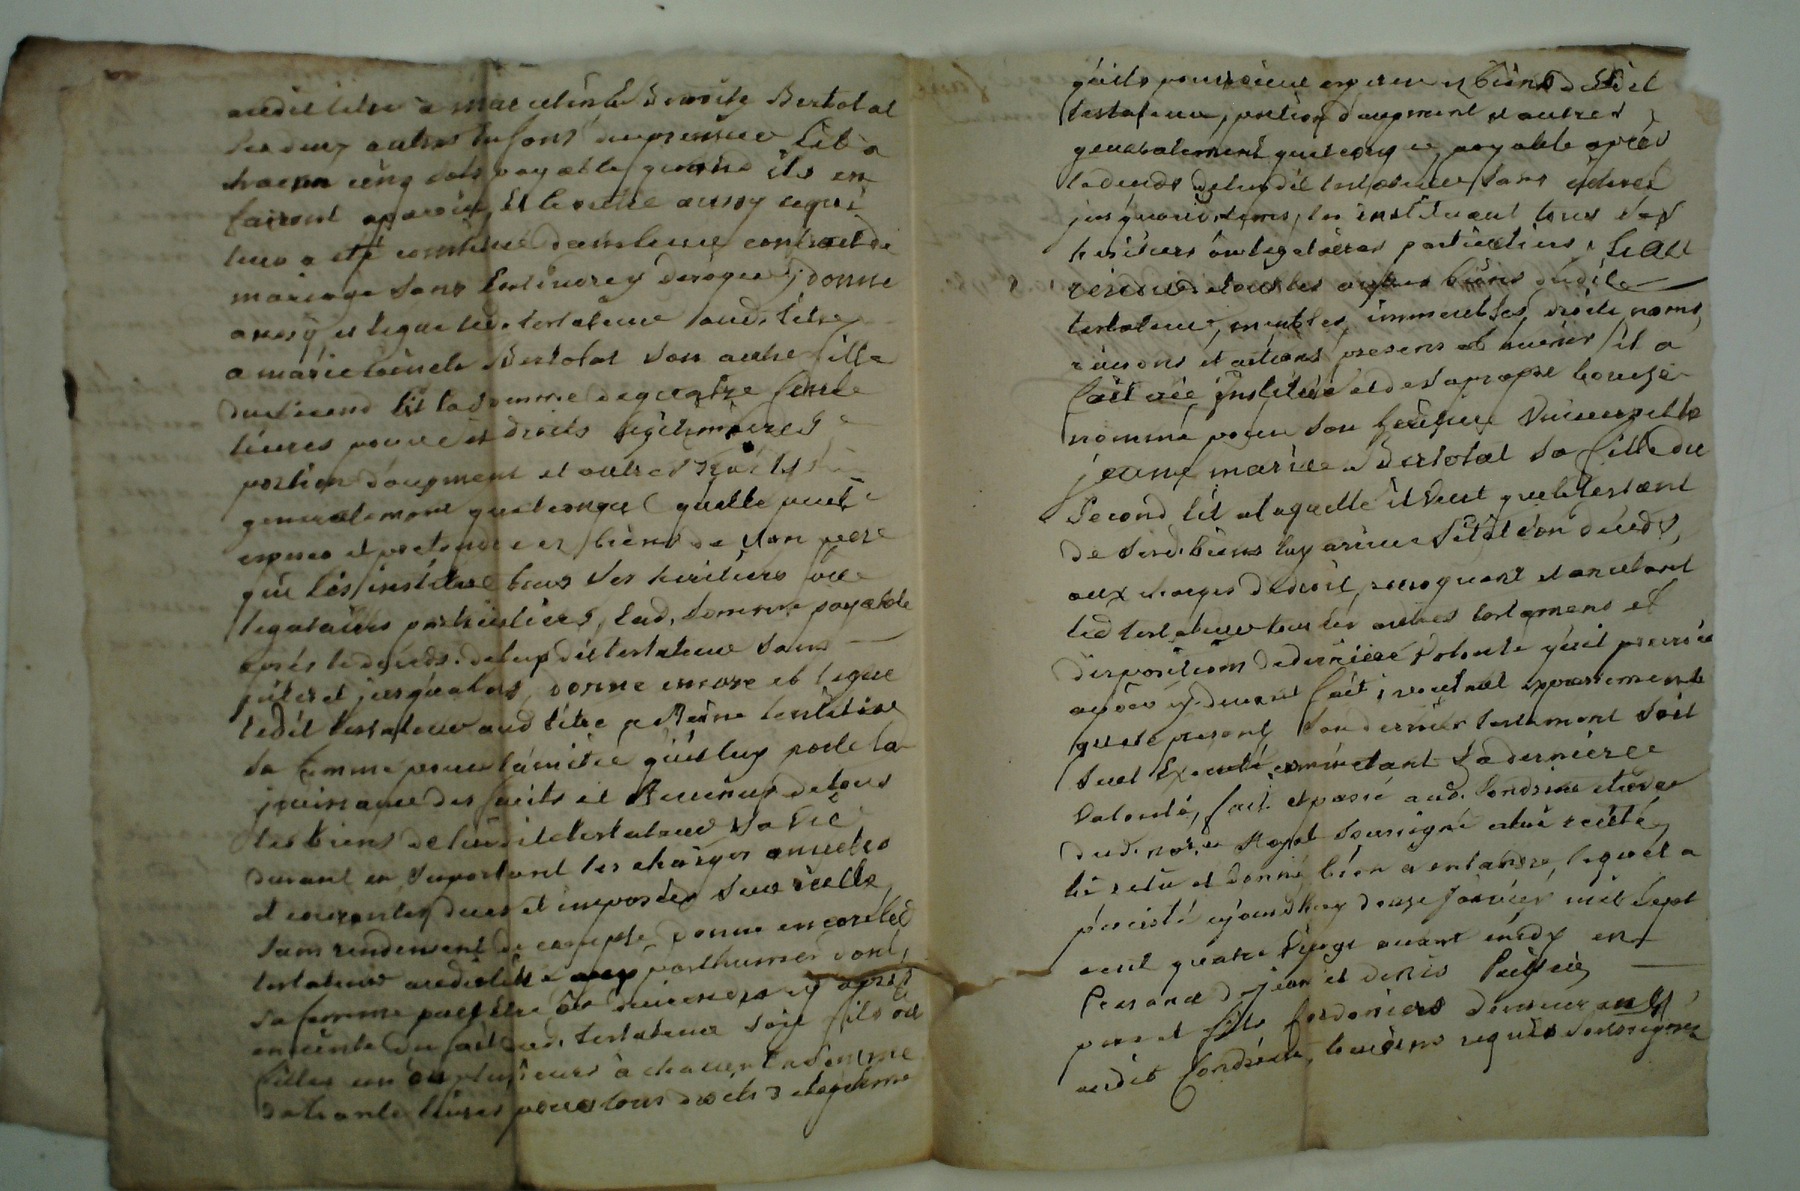 audit titre a marcelin & Benoite Bertolat
ses deux autres enfans du premier lit a
chacun cinq sols payable quand ils en
fairont aparoir, et le outre aussy ce qui
leur a eté constitué dans leur contract de
mariage sans entendre y deroger, donne
aussy et legue led. testateur aud. titre
a marie Bertolat son autre fille
du second lit la somme de quatre cent
livres pour ses droits legitimaires
portion d'augment et autres droits
generalement quelconque quelle peut
esperer et pretendre es biens de son pere
qui les institue tous ses heritiers ou
legataires particuliers, lad. somme payable
après le deceds dudit testateur sans
interet jusqualors, donne encore et legue
ledit testateur aud titre a Reine
sa femme pour l'amitié qu'il luy porte la
jouissance des fruits et Revenus de tous
les biens dudit testateur sa vie
durant en suportant les charges annuelles
et courantes dues et imposées sur icelle
sans rendement de compte, donne encore led
testateur audit titre aux posthumes dont
sa femme peut etre ou deviendra cy après
enceinte du fait dud. testateur soit fils ou
filles un ou plusieurs à chacun la somme
livres pour tous droits de legitime
quils pourroient esperer es biens dudit
testateur, portion d'augment et autres
generalement quelconque, payable après
le deceds dudit testateur sans interet
jusqu'alors, les instituant tous ses
heritiers ou legataires particuliers, & au
residu de tous les autres biens dudit
testateur, meubles, immeubles, droits, noms,
raisons et actions, presens et avenir, il a
fait créé, institué et de sa propre bouche
nommé pour son heritiere Universelle
jeanne marie Bertolat sa fille du
second lit a laquelle il veut que le restant
de sesd. biens luy arrive sitôt son deceds,
aux charges de droit, revoquant et anulant
led testateur tous les autres testamens et
dispositions de derniere volonté qu'il pourroit
avoir cy devant fait, voulant expressement
que le present son dernier testament soit
seul executé contenant sa derniere
Volonté, fait et passé aud. Condrieu etude
dud. no.re Royal soussigné a luy recité
lû relû et donné bien a entandre, lequel a
persisté ajourdhuy douze janvier mil sept
cent quatre vingt avant midy en
presance de jean et denis
pere et fils cordoniers demeurants
audit Condrieu, temoins requis soussignés